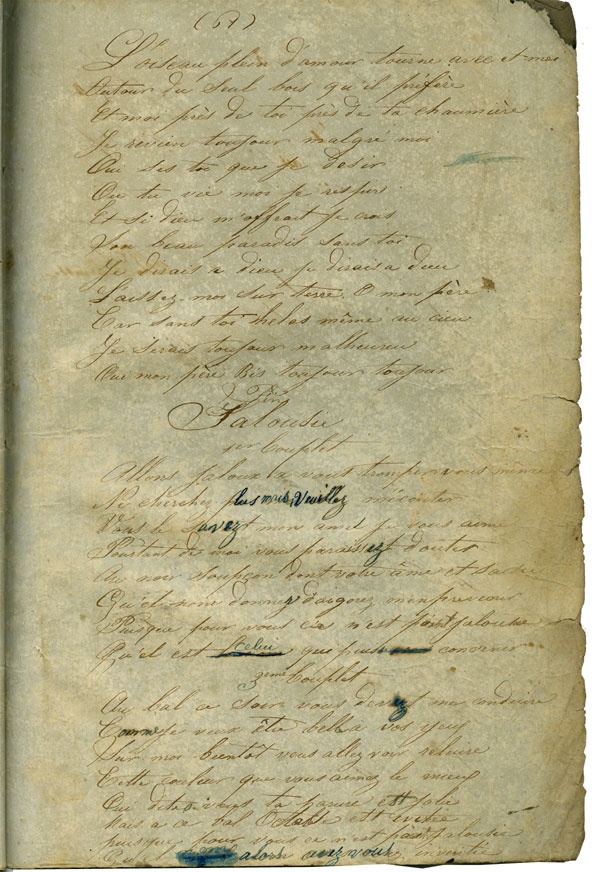 (67)
L'oiseau plein d'amour tourne avec et moi
Autour du seul bois qu'il préfère
Et moi près de toi près de ta chaumière
Je revien toujour malgré moi
Oui ses toi que je desir
Ou tu vie moi je respir
Et si dieu m'offrait je crois
Son beau paradis sans toi
Je dirais a dieu je dirais a dieu
Laissez-moi sur terre O mon père
Car sans toi helas même au cieu
Je serais toujour malheureu
Oui mon père Bis toujour toujour
Fin
Jalousie
1er Couplet
Allons jaloux a vous tromper vous même
Ne cherchez plus mais, Veuillez m'écouter
Vous le savez mon ami je vous aime
Pourtant de moi vous paraissez douter
Au noir soupçon dont votre âme et
Qu'el nom donner
Puisque pour vous ce n'est point jalousie
Qu'el est Celui qui puis convenir
2eme Couplet
Au bal ce soir vous devez me conduire
Comme je veux être bell a vos yeux
Sur moi bientôt vous allez voir reluire
Cette couleur que vous aimez le mieux
Oui dites vous ta parure est jolie
Mais a ce bal est
puisque pour vous ce n'est point jalousie
alors avez vous